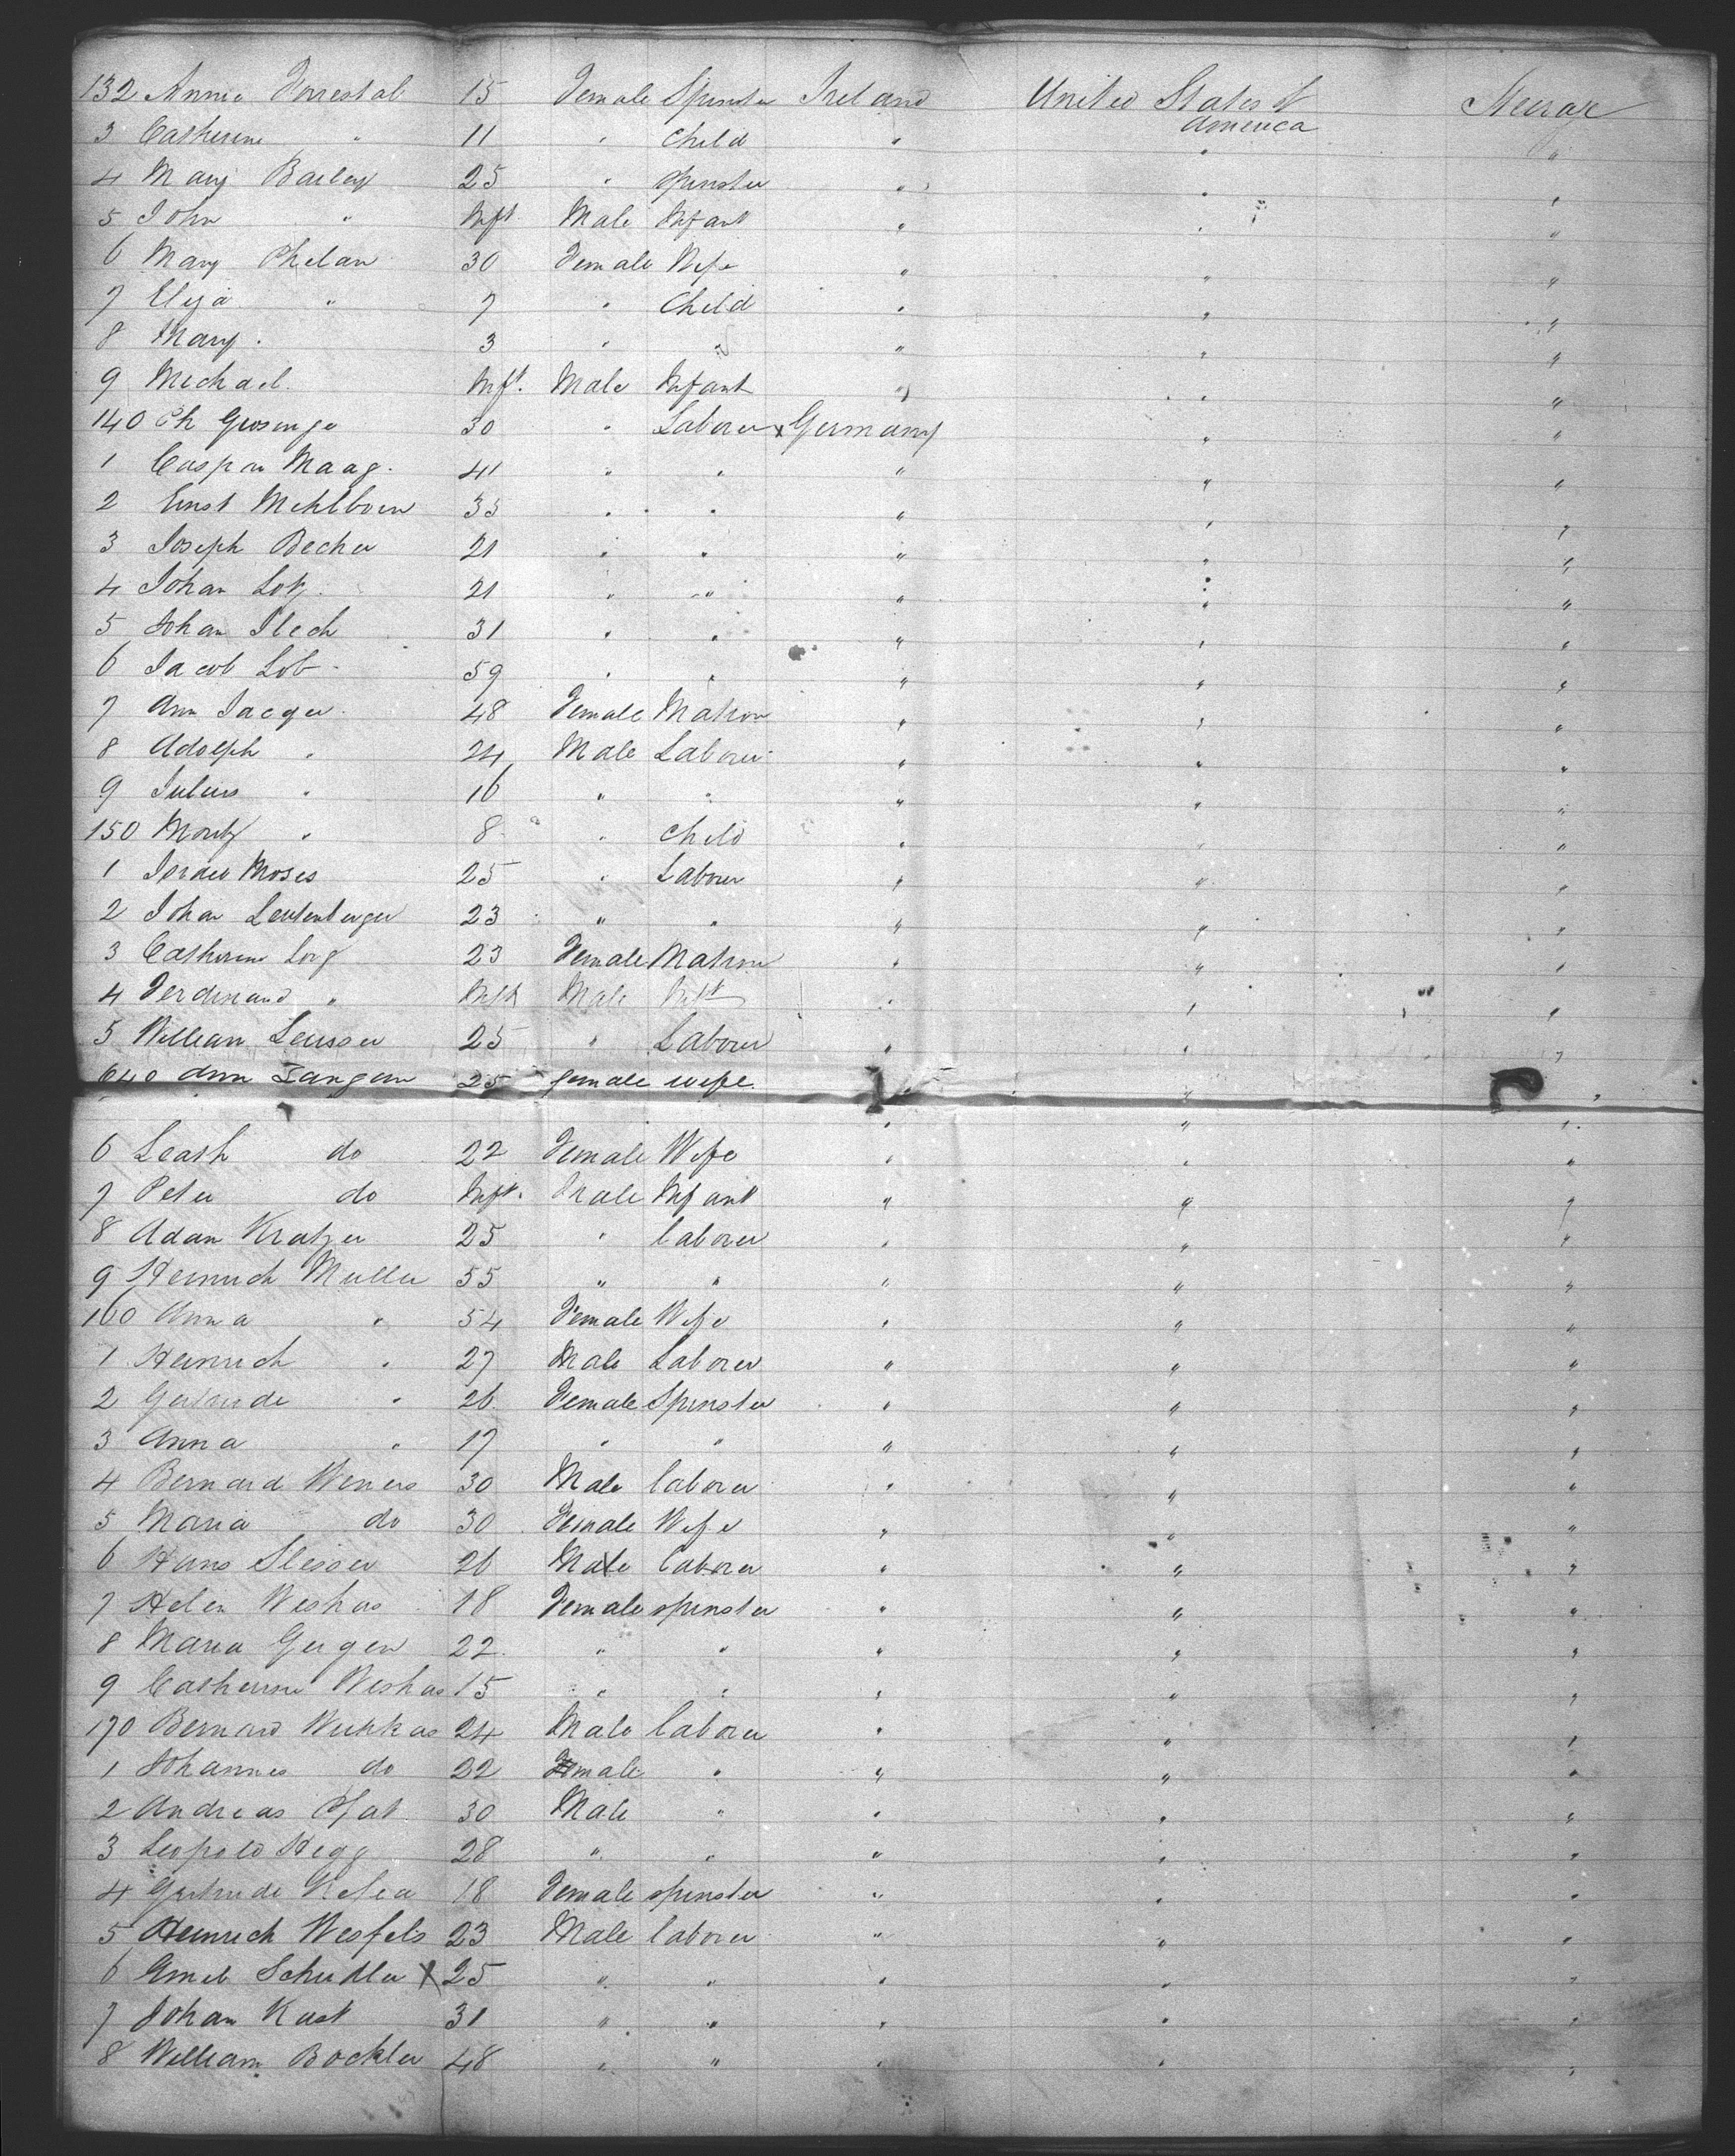 132 Annie Forrestal 15 Female Spinster Ireland United States of America Steerage
3 Catherine " 11 " Child " " "
4 Mary Bailey 25 " Spinster " " "
5 John " Inft Male Infant " " "
6 Mary Phelan 30 Female Wife " " "
7 Eliza " 7 " Child " " "
8 Mary " 3 " " " " "
9 Michael Inft. Male Infant " " "
140 Ch 30 " Laborer x Germany " "
1 Caspar Maag 41 " " " " "
2 Ernst Mehlborn 33 " " " " "
3 Joseph Becher 21 " " " " "
4 Johan Lotz 21 " " " " "
5 Johan Ilech 31 " " " " "
6 Jacob Lob 59 " " " " "
7 Ann Jaeger 48 Female Matron " " "
8 Adolph " 24 Male Laborer " " "
9 Julius " 16 " " " " "
150 Moritz " 8 " Child " " "
1 Moses 25 " Laborer " " "
2 Johan Leutenberger 23 " " " " "
3 Catherine Long 23 Female Matron " " "
4 Ferdinand " Inft Male Inft " " "
5 William Leusser 25 " Laborer " " "
640 Ann Langan 25 female wife " " "
6 Leash do 22 Female Wife " " "
7 Peter do Inft. Male Infant " " "
8 Adam Kratzer 25 " laborer " " "
9 Heinrich Muller 55 " " " " "
160 Anna " 54 Female Wife " " "
1 Heinrich " 27 Male Laborer " " "
2 Gertrude " 26 Female Spinster " " "
3 Anna " 17 " " " " "
4 Bernard Weners 30 Male laborer " " "
5 Maria do 30 Female Wife " " "
6 Hans Slesser 26 Male laborer " " "
7 Helen Weshas 18 Female spinster " " "
8 Maria Gergen 22 " " " " "
9 Catherine Weshas 15 " " " " "
170 Bernard 24 Male laborer " " "
1 Johannes do 22 male " " " "
2 Andreas Pfat 30 Male " " " "
3 Leopold Hegg 28 " " " " "
4 Gertrude 18 Female spinster " " "
5 Heinrich Wesfels 23 Male laborer " " "
6 Emil Schedler X 25 " " " " "
7 Johan Kast 31 " " " " "
8 William Bockler 48 " " " " "